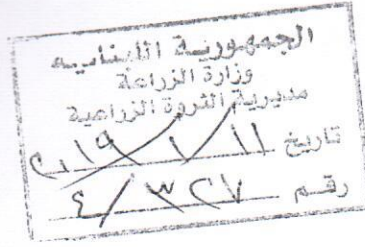 الجمهورية اللبنانيه
وزارة الزراعة
مديرية الثروة الزراعية
تاريخ ٢٠١٩/١/١١
رقم ٤/٣٢٧